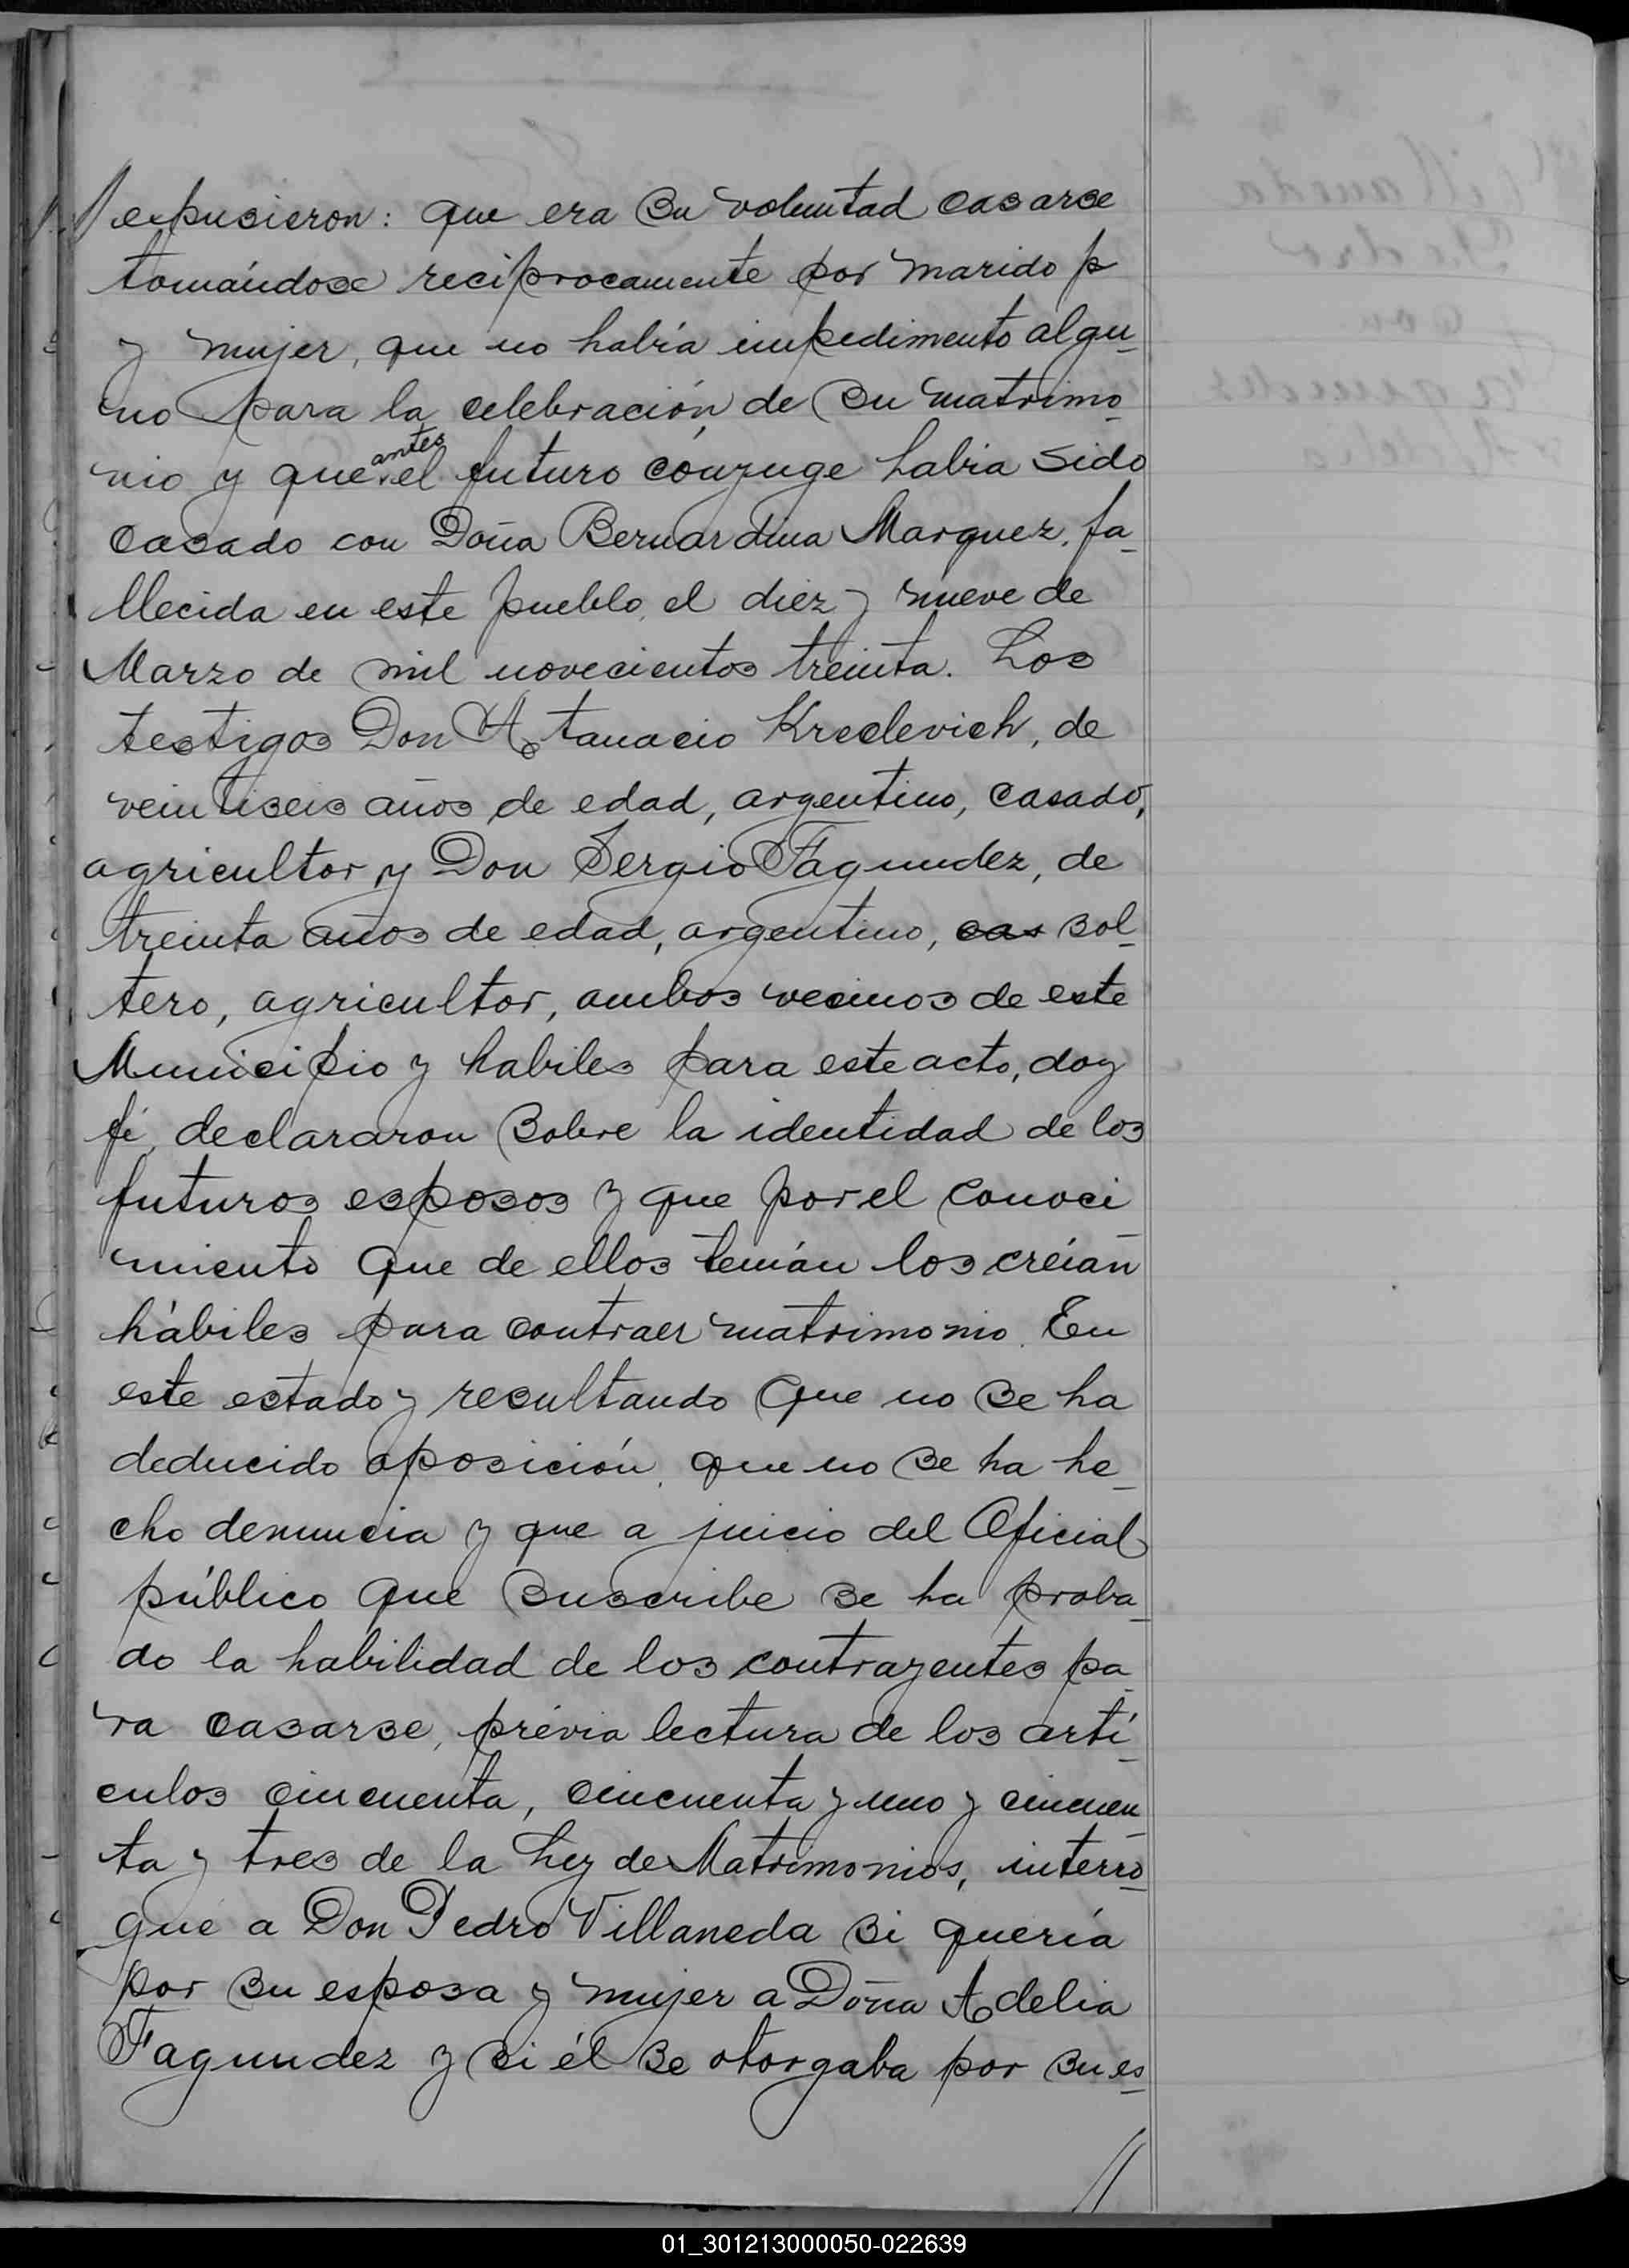 // expusieron: que era su voluntad casarse
tomándose reciprocamente por marido p
y mujer, que no había impedimento algu-
no para la celebración de su matrimo-
nio y que antes el futuro cónyuge habia sido
casado con Doña Bernardina Marquez, fa-
llecida en este pueblo, el diez y nueve de
Marzo de mil novecientos treinta. Los
testigos Don Atanacio Kreclevich, de
veintiseis años de edad, argentino, casado,
agricultor y Don Sergio Fagundez, de
treinta años de edad, argentino, cas sol-
tero, agricultor, ambos vecinos de este
Municipio y habiles para este acto, doy
fé, declararon sobre la identidad de los
futuros esposos y que por el conoci
miento que de ellos tenían los creían
hábiles para contraer matrimonio. En
este estado y resultando que no se ha
deducido oposición, que no se ha he-
cho denuncia y que a juicio del Oficial
público que suscribe se ha proba-
do la habilidad de los contrayentes pa-
ra casarse, prévia lectura de los artí-
culos cincuenta, cincuenta y uno y cincuen-
ta y tres de la Ley de Matrimonios, interro-
gué a Don Pedro Villaneda si quería
por su esposa y mujer a Doña Adelia
Fagundez y si él se otorgaba por su es-
//
01_301213000050-022639